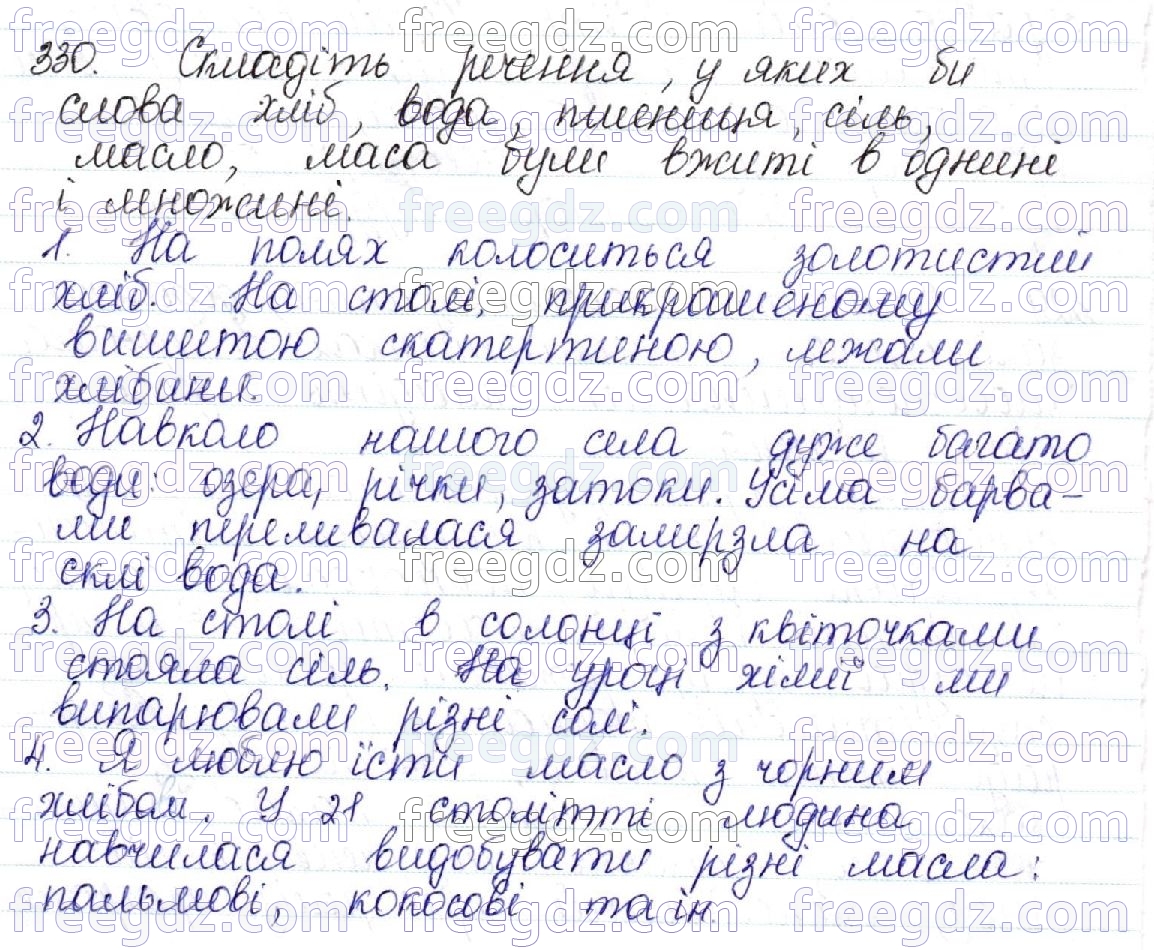 330. Складіть речення, у яких би
слова хліб, вода, пшениця, сіль,
масло, маса були вжиті в однині
і множині.
1. На полях колоситься золотистий
хліб. На столі, прикрашеному
вишитою скатертиною, лежали
хлібини.
2. Навколо нашого села дуже багато
води: озера, річки, затоки. Усіма барва-
ми переливалася замерзла на
склі вода.
3. На столі в солонці з квіточками
стояла сіль. На уроці хімії ми
випарювали різні солі.
4. Я люблю їсти масло з чорним
хлібом. У 21 столітті людина
навчилася видобувати різні масла:
пальмові, кокосові та ін.
freegdz.com